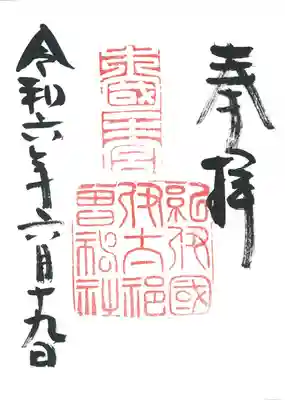 奉拝
紀伊國
伊太祁
曽神社
令和六年六月十九日